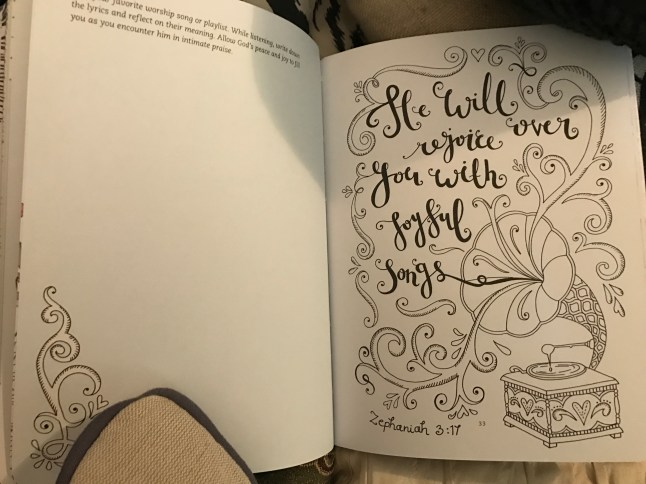 favorite worship song or playlist. While listening, write down
the lyrics and reflect on their meaning. Allow God's peace and joy to fill
you as you encounter him in intimate praise.
He will
rejoice over
you with
joyful
songs
Zephaniah 3:17
33